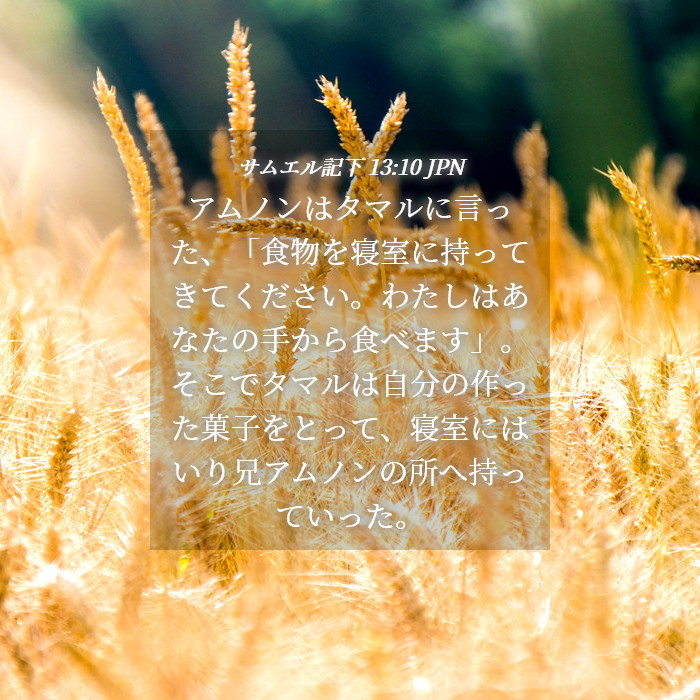 サムエル記下 13:10 JPN
アムノンはタマルに言っ
た、「食物を寝室に持って
きてください。わたしはあ
なたの手から食べます」。
そこでタマルは自分の作っ
た菓子をとって、寝室には
いり兄アムノンの所へ持っ
ていった。